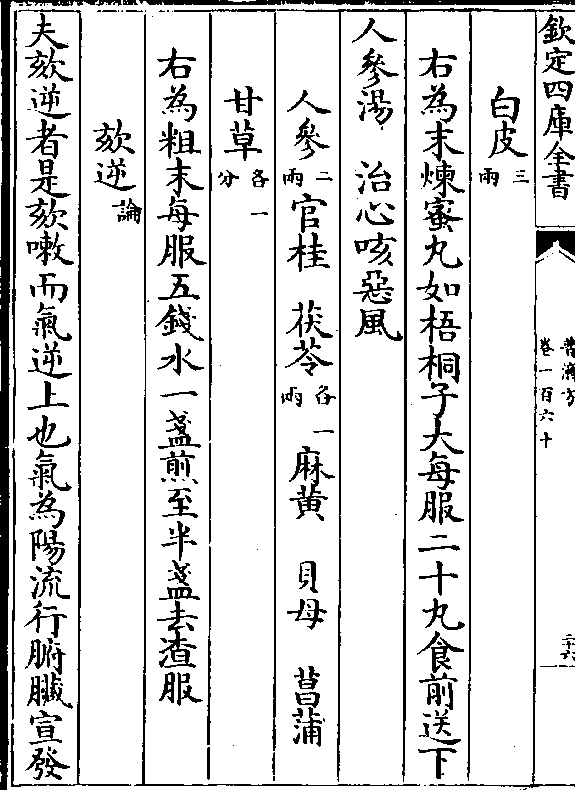 欽定四庫全書
普濟方
卷一百六十
二十六
白皮三兩
右為末煉蜜丸如梧桐子大每服二十丸食前送下
人參湯 治心咳惡風
人參二兩 官桂 茯苓各一兩 麻黄 貝母 菖蒲
甘草各一分
右為粗末每服五錢水一盞煎至半盞去渣服
欬逆論
夫欬逆者是欬嗽而氣逆上也氣為陽流行腑臟宣發